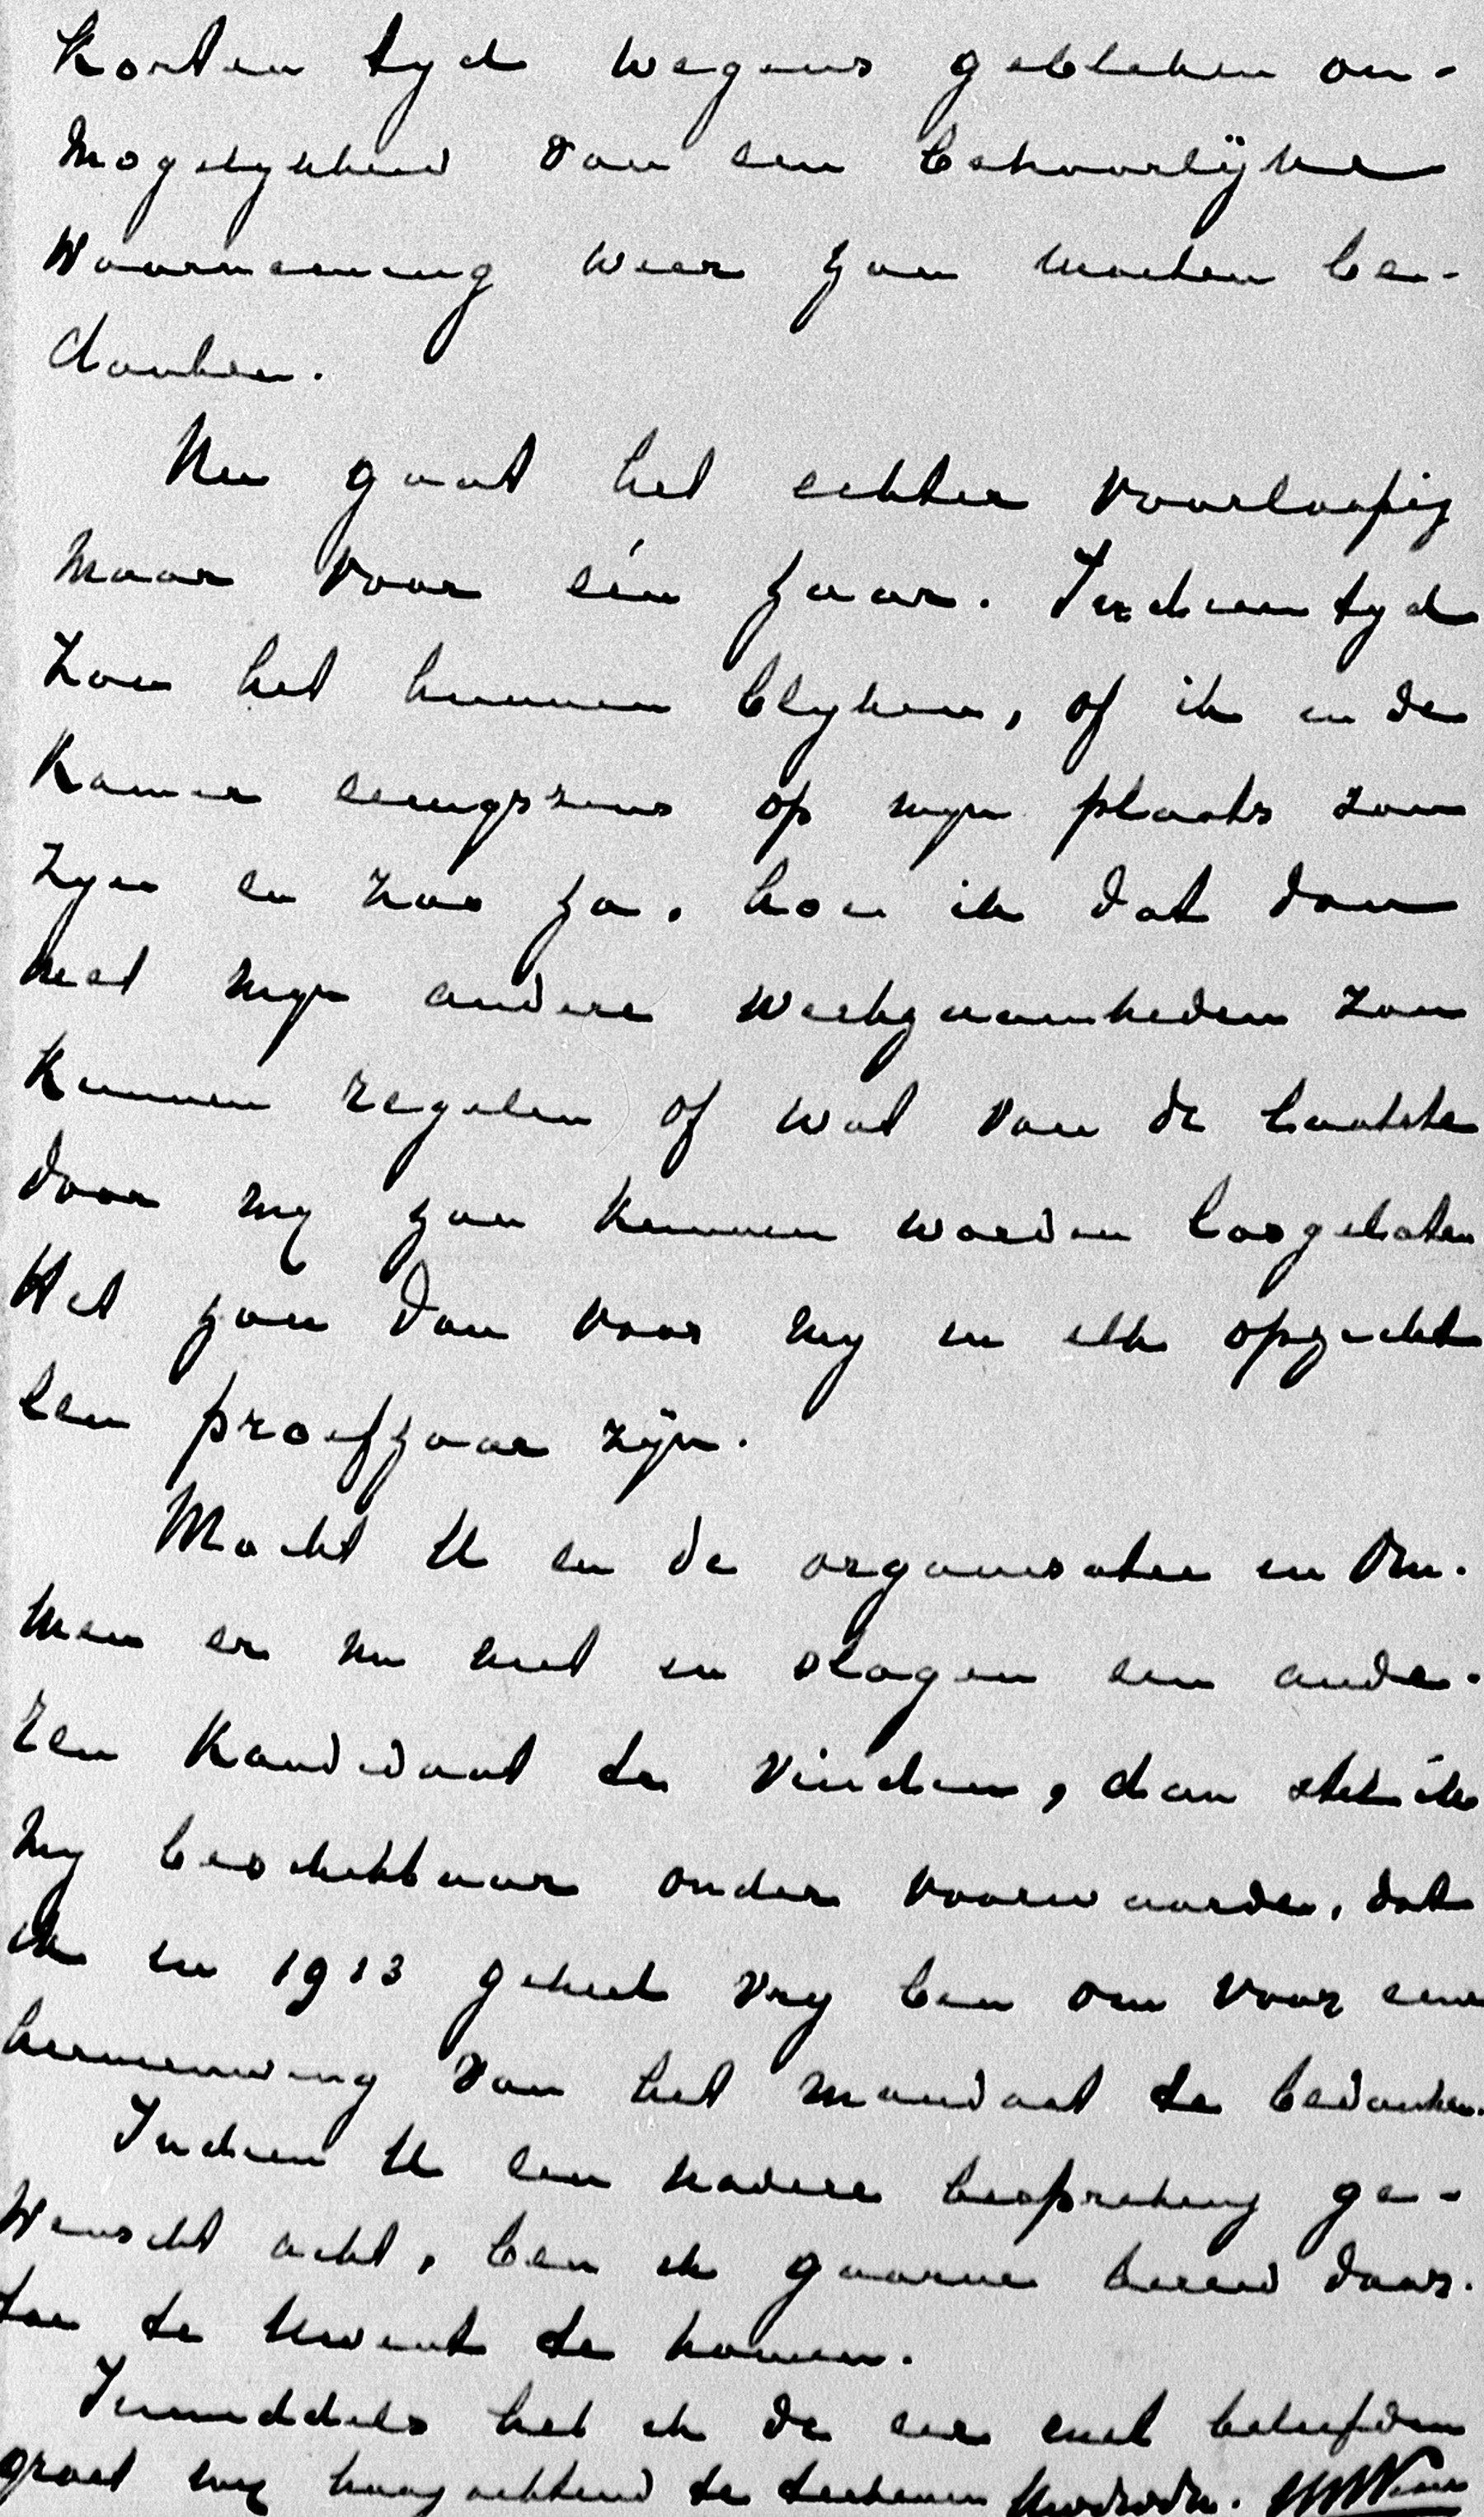 korten tyd wegens gebleken on-
mogelykheid van een behoorlÿke
waarneming weer zou moeten be-
danken.
Nu gaat het echter voorloopig
maar voor één jaar. In dien tyd
zou het kunnen blyken, of ik in de
Kamer eenigszins op myn plaats zou
zyn en zoo ja, hoe ik dat dan
met myn andere werkzaamheden zou
kunnen regelen of wat van de laatste
door my zou kunnen worden losgelaten
Het zou dan voor my in elk opzicht
een proefjaar zÿn.
Mocht U en de organisatie in Om-
men er nu niet in slagen een ande-
ren kandidaat te vinden, dan stel ik
my beschikbaar onder voorwaarde, dat
ik in 1913 geheel vry ben om voor eene
hernieuwing van het mandaat te bedanken.
Indien U een nadere bespreking ge-
wenscht acht, ben ik gaarne bereid daar-
toe te Uwent te komen.
Inmiddels heb ik de eer met beleefden
groet my hoogachtend te teekenen Uwdwdr.